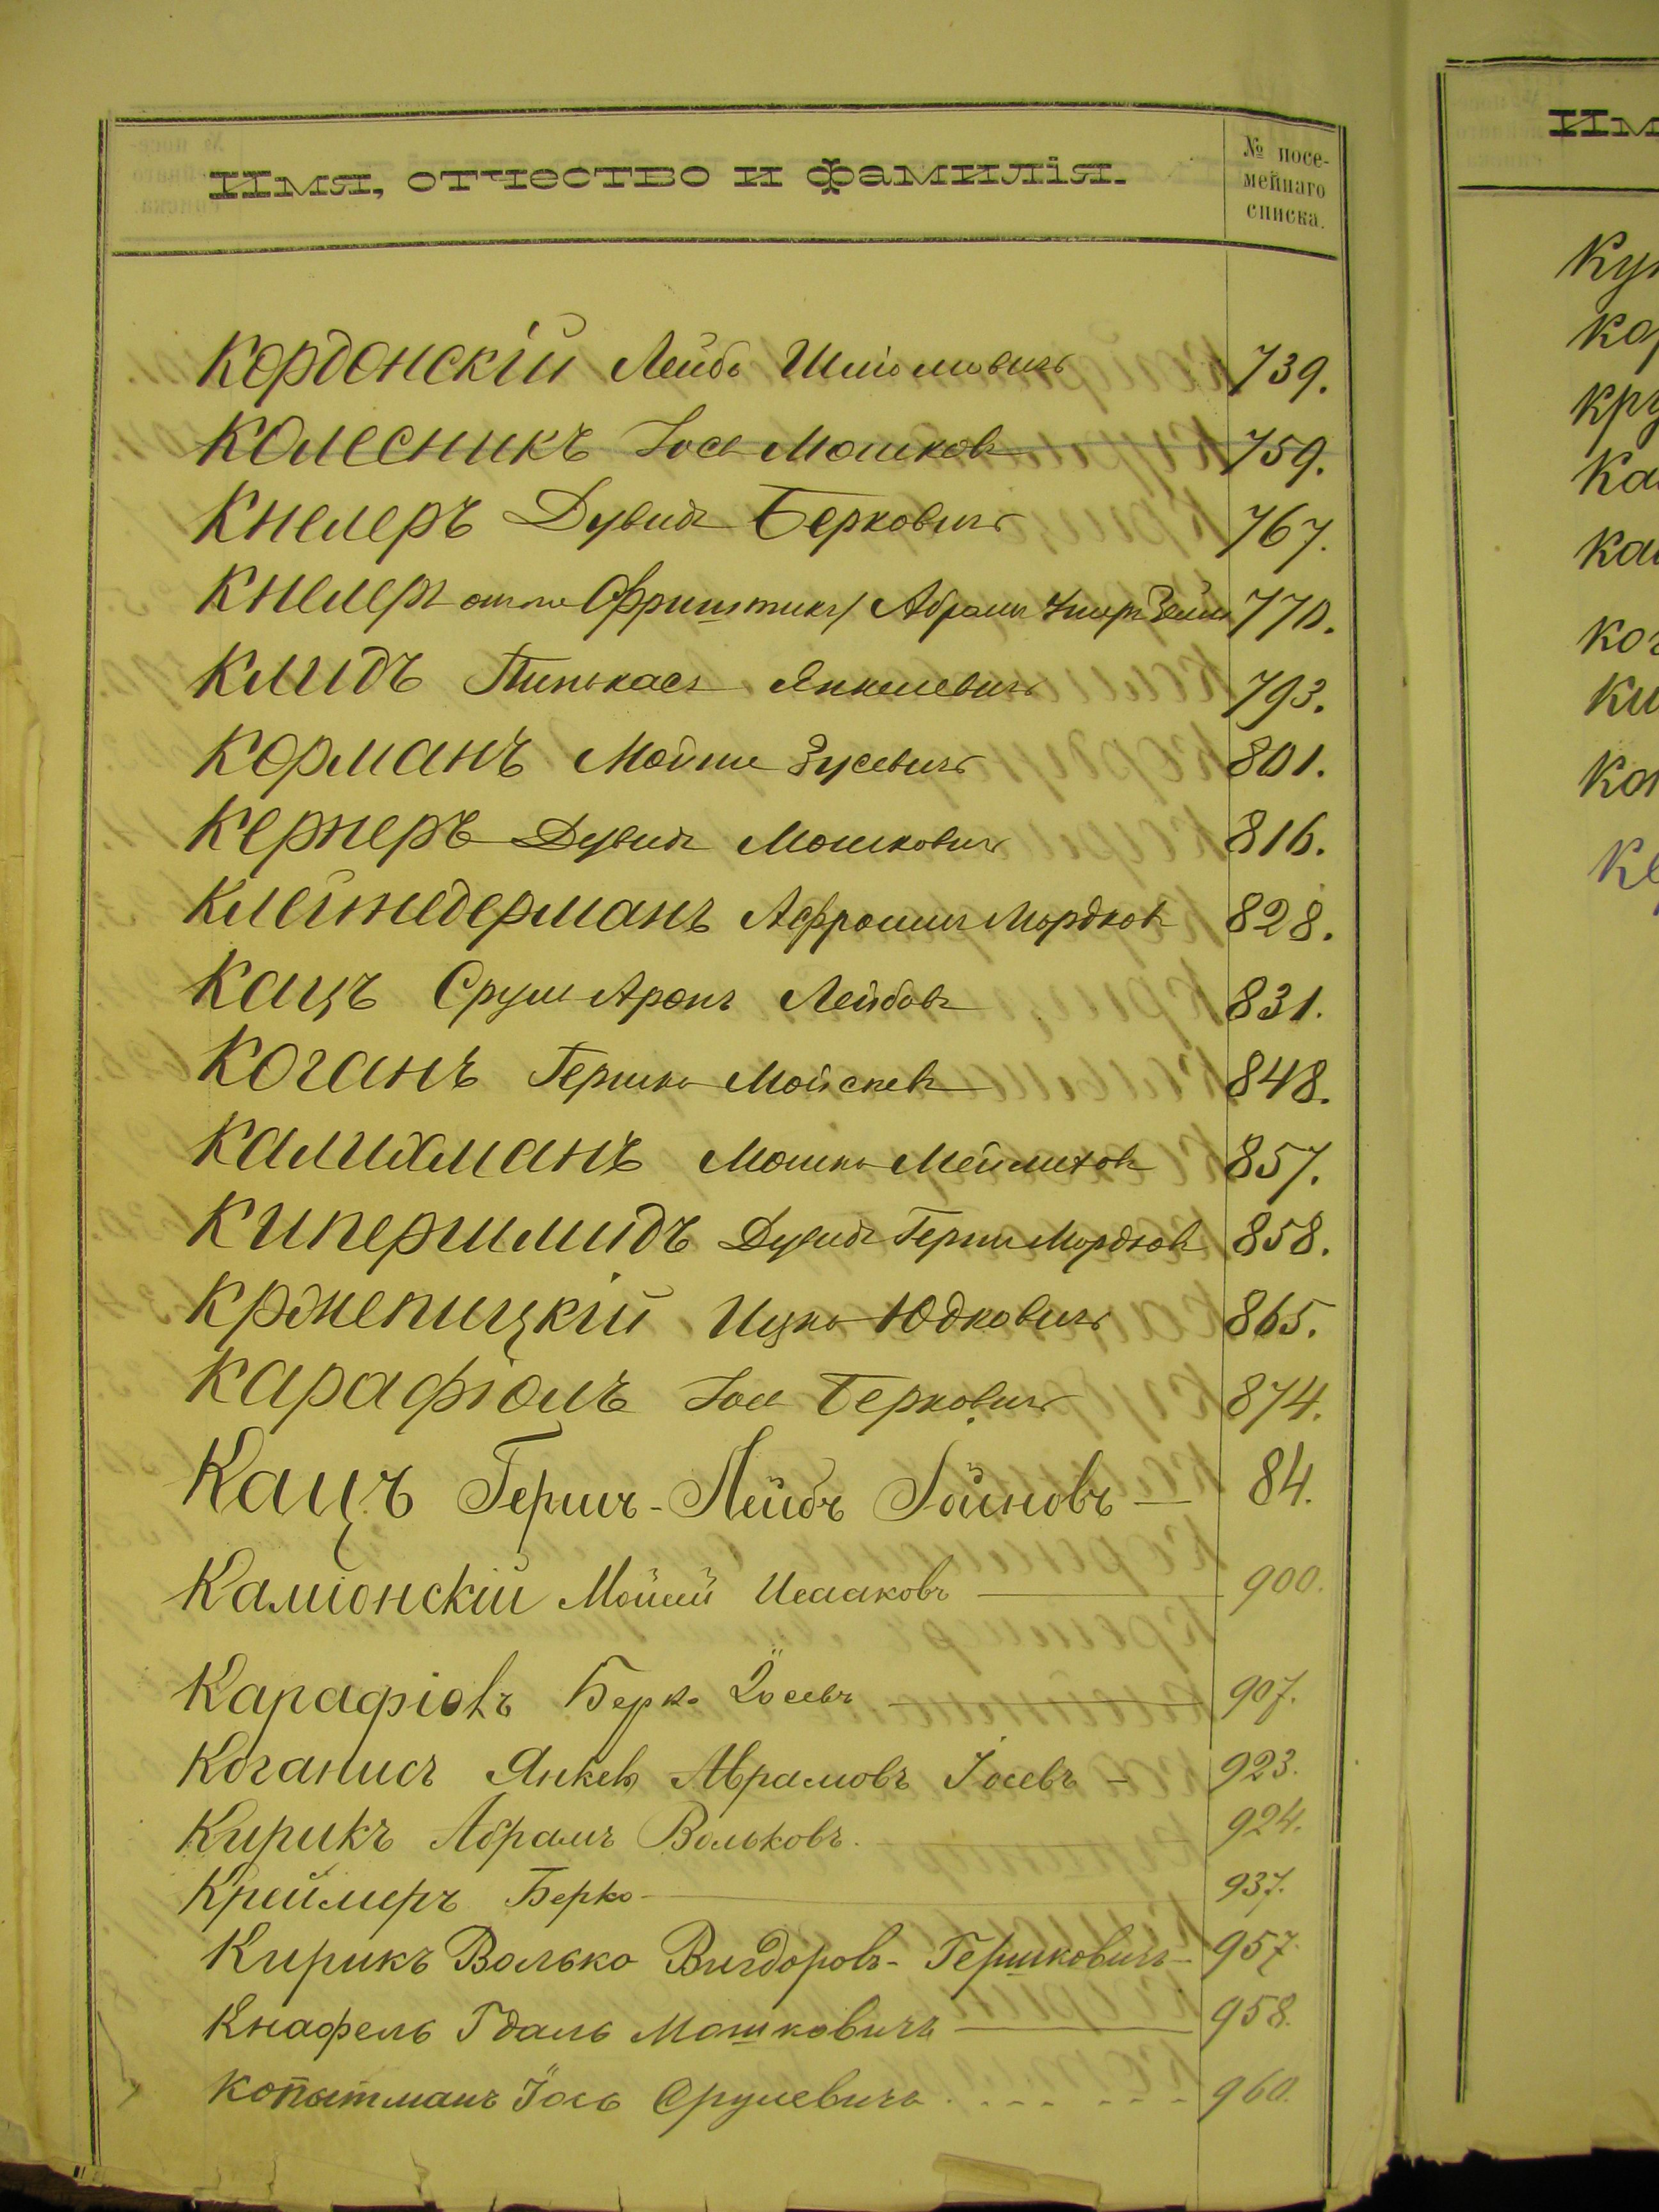 Имя, отчество и фамилія.
№ посе-
мейнаго
списка.
Кордонскій Лейбъ Шліомовичъ 739.
Колесникъ Іось Мошковъ 759.
Кнелеръ Дувидъ Берковичъ 767.
Кнелеръ Фриштикъ/ Абрамъ 770.
Клидъ Пинькасъ Янкелевичъ 793.
Корманъ Мойше Зусевичъ 801.
Кернеръ Дувидъ Мошковичъ 816.
Клейнедерманъ Афроимъ Мордковъ 828.
Кацъ Сруль Аронъ Лейбовъ 831.
Коганъ Гершко 848.
Калихманъ Мошко Мейлиховъ 857.
Кипершмидъ Дувидъ Гершъ Мордковъ 858.
Кржепицкій Ицко Юдковичъ 865.
Карафіолъ Іось Берковичъ 874.
Кацъ Гершъ-Лейбъ 84.
Каліонскій Мойсей Исааковъ 900.
Берко Іосевъ 907.
Коганисъ Янкель Аврамовъ Іосевъ - 923.
Кирикъ Абрамъ Вольковъ. 924.
Креймеръ Берко 937.
Кирикъ Волько Вигдоровъ-Гершковичъ 957.
Кнафель Гдаль Мошковичъ 958.
Копытманъ Іось Срулевичъ 960.
Им
Ку
ко
кр
Ка
ка
ко
Ки
ко
Ке